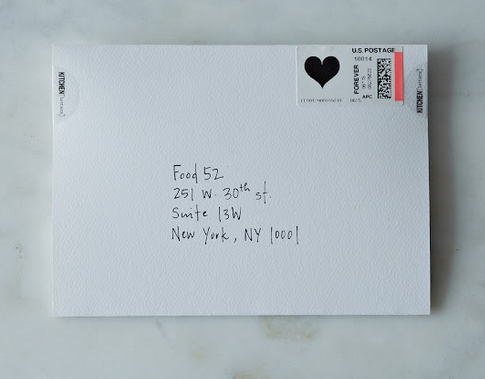 U.S. POSTAGE
10014
FOREVER
APC
KITCHEN
KITCHEN
Food 52
251 W. 30th st.
Suite 13W
New York, NY 10001